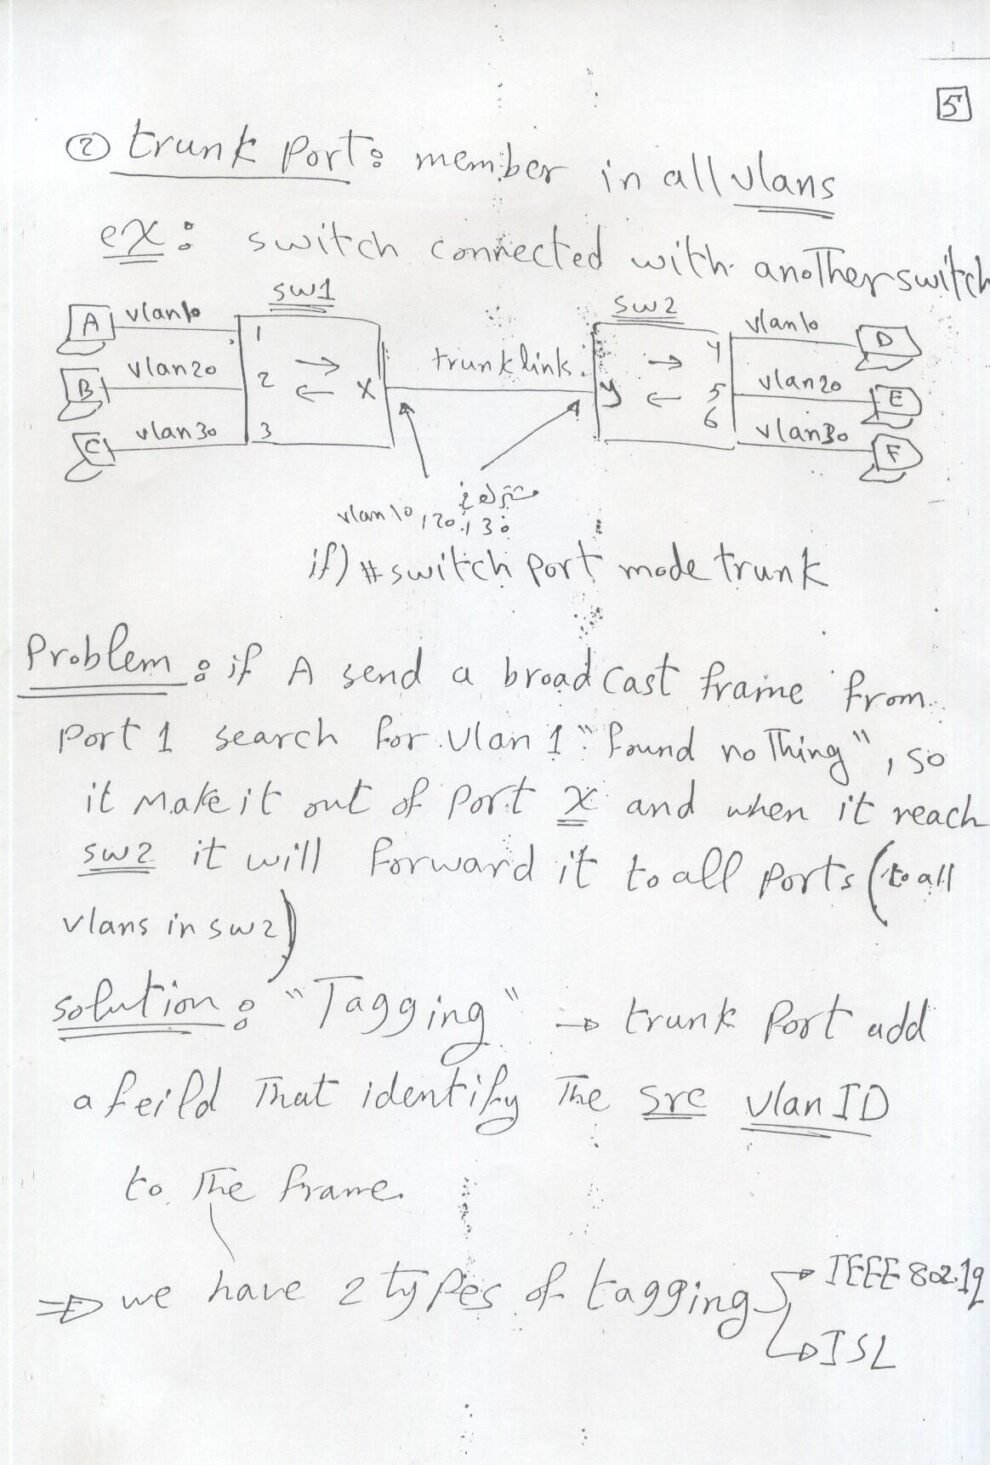 5
② trunk port: member in all vlans
ex: switch connected with another switch
sw1
sw2
A vlan10 1
B vlan20 2
C vlan30 3
X
trunk link
y
4 vlan10 D
5 vlan20 E
6 vlan30 F
مشترك في
vlan10,20,30
if) # switch port mode trunk
Problem: if A send a broadcast frame from
port 1 search for vlan 1 "found nothing", so
it make it out of port X and when it reach
sw2 it will forward it to all ports (to all
vlans in sw2)
solution: "Tagging" → trunk port add
a feild that identify the src vlan ID
to the frame.
⇒ we have 2 types of tagging → IEEE 802.1q
→ ISL